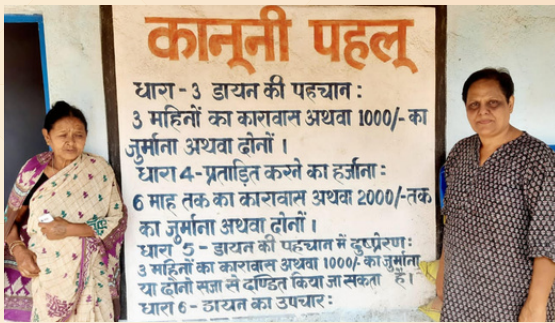 कानूनी पहल्
धारा - 3 डायन की पहचान :
3 महिनों का कारावास अथवा 1000/- का
जुर्माना अथवा दोनों ।
धारा 4 - प्रताड़ित करने का हर्जाना :
6 माह तक का कारावास अथवा 2000/-तक
का जुर्माना अथवा दोनों ।
धारा 5 - डायन की पहचान में दुष्प्रेरण:
3 महिनों का कारावास अथवा 1000/- का जुर्माना
या दोनो सजा से दण्डित किया जा सकता है।
धारा 6 - डायन का उपचार :